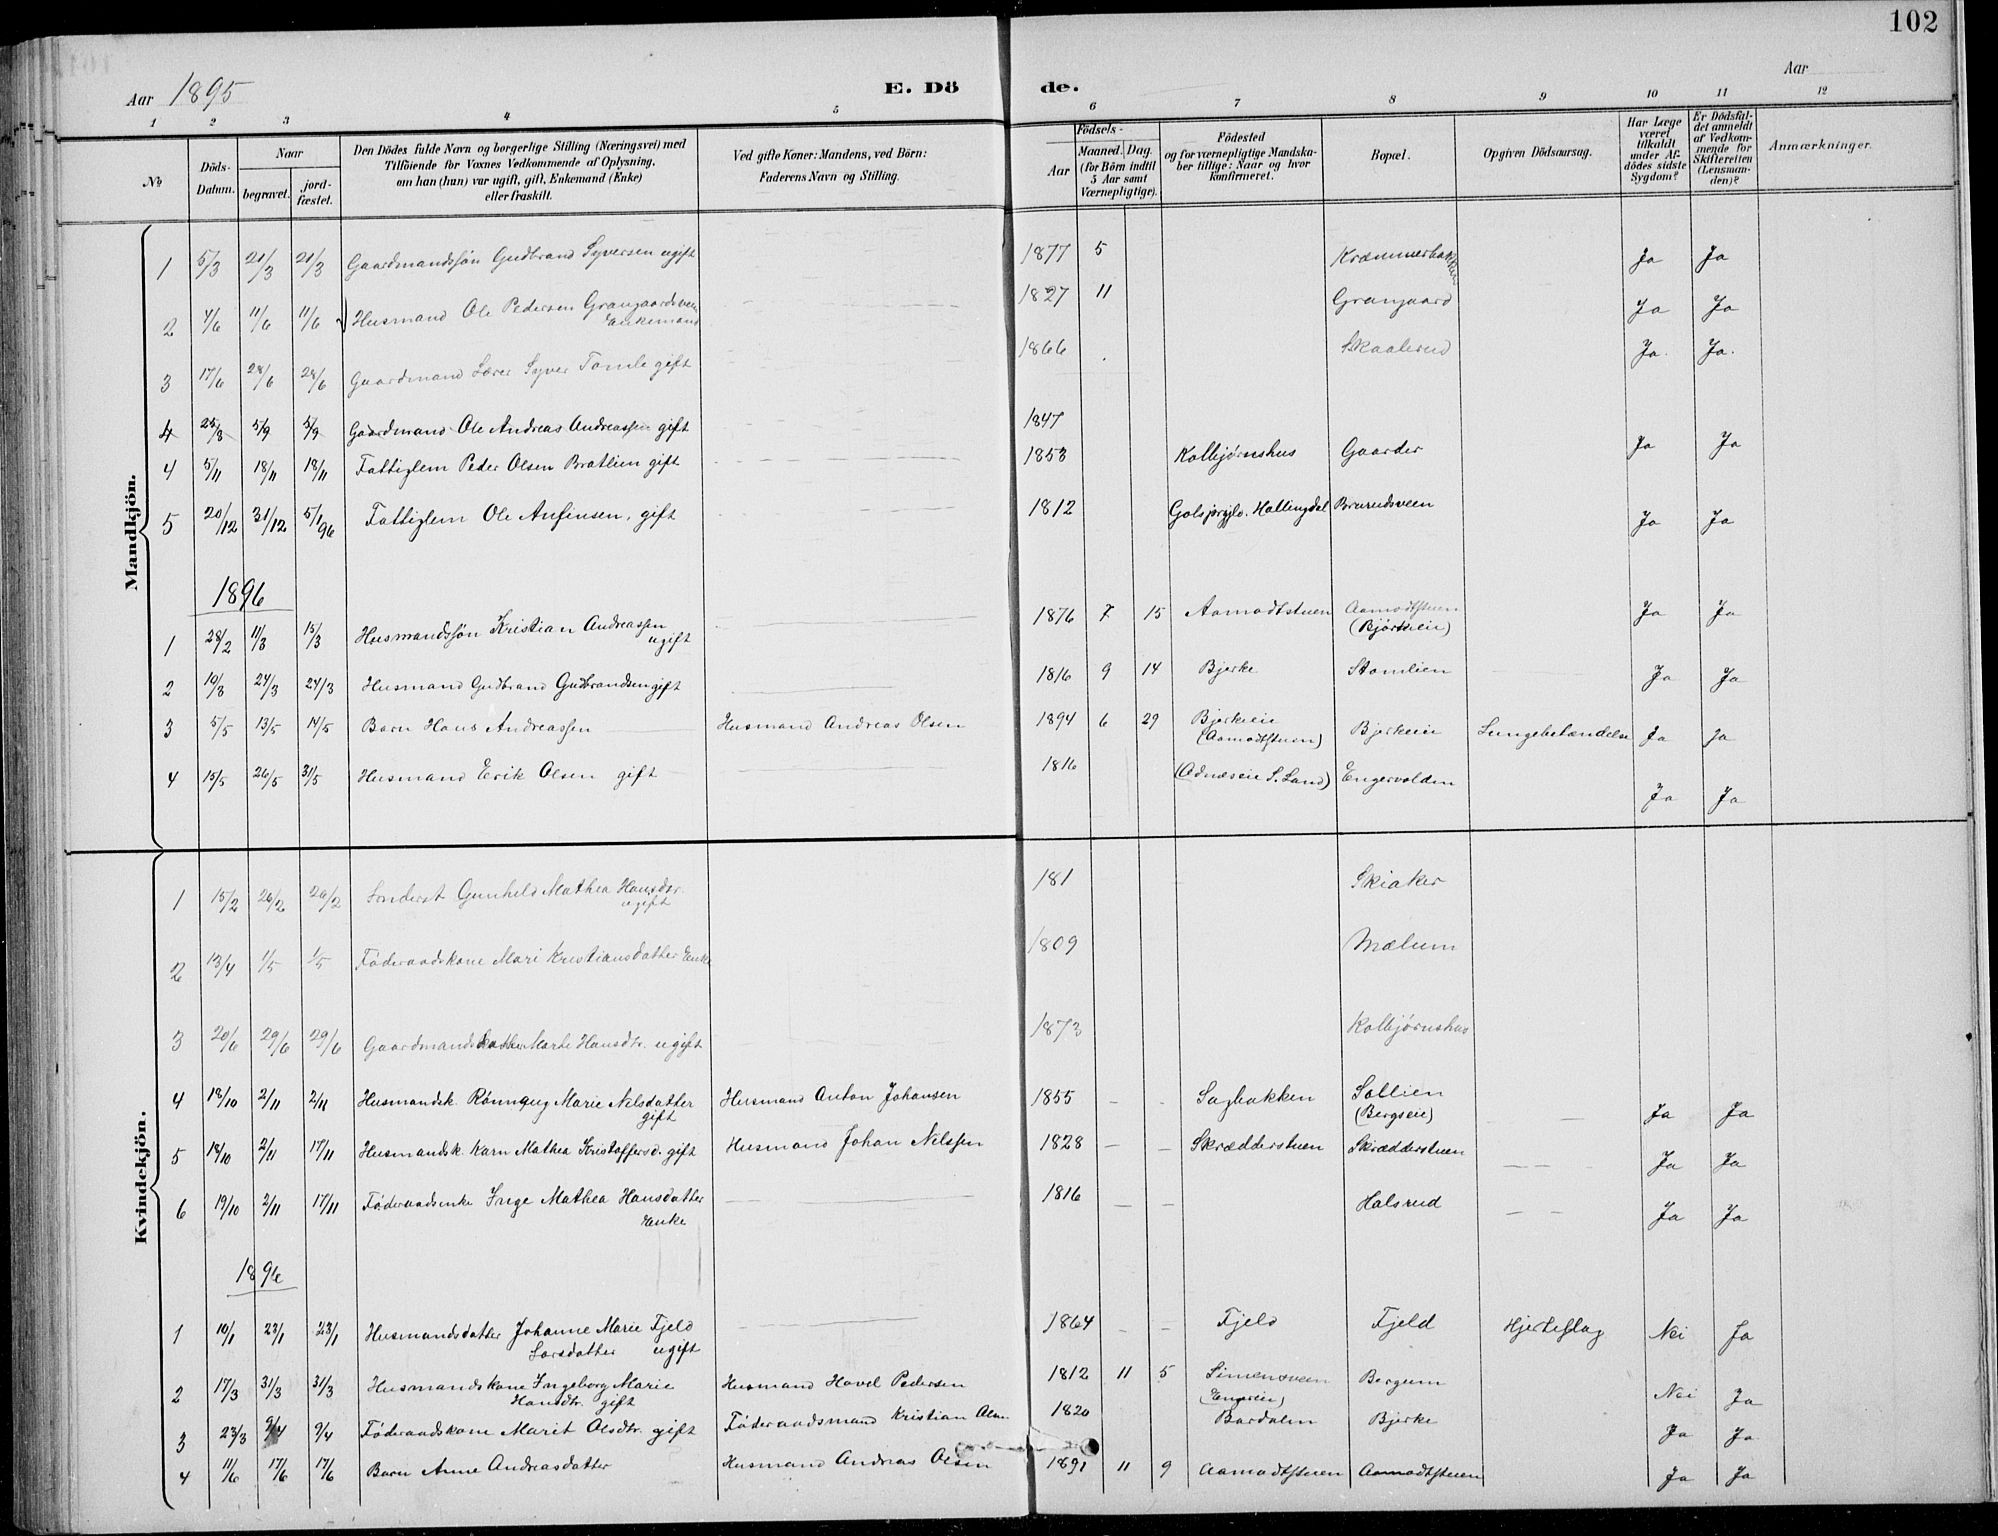 102
Aar 1895 E. Dö de. Aar
1 2 3 4 5 6 7 8 9 10 11 12
No. Döds-Datum. Naar begravet. jordfæstet. Den Dödes fulde Navn og borgerlige Stilling (Næringsvei) med Tilföiende for Voxnes Vedkommende af Oplysning, om han (hun) var ugift, gift, Enkemand (Enke) eller fraskilt. Ved gifte Koner: Mandens, ved Börn: Faderens Navn og Stilling. Födsels- Aar Maaned. Dag. (for Börn indtil 5 Aar samt Værnepligtige). Födested og for værnepligtige Mandskaber tillige: Naar og hvor konfirmeret. Bopæl. Opgiven Dödsaarsag. Har Læge været tilkaldt under Afdödes sidste Sygdom? Er Dödsfaldet anmeldt af Vedkommende for Skifteretten (Lensmanden)? Anmærkninger.
Mandkjön.
1 5/3 21/3 21/3 Gaardmandssön Gudbrand Syversen ugift 1877 5 Kræmmerbakken Ja Ja
2 4/6 11/6 11/6 Husmand Ole Pedersen Grangaardsveen Enkemand 1827 11 Grangaard Ja Ja
3 17/6 28/6 28/6 Gaardmand Lærer Syver Tomle gift 1866 Skaalerud Ja Ja
4 25/8 5/9 5/9 Gaardmand Ole Andreas Andreassen gift 1847
4 5/11 18/11 18/11 Fattiglem Peder Olsen Bratlien gift 1853 Kolbjørnshus Gaarder Ja Ja
5 20/12 31/12 5/1 96 Fattiglem Ole Anfinsen, gift 1812 Golsprgjld. Hallingdal Brurudsveen Ja Ja
1896
1 28/2 11/3 15/3 Husmandssøn Kristian Andreassen ugift 1876 7 15 Aamodtstuen Aamodtstuen (Bjørkeie) Ja Ja
2 19/3 24/3 24/3 Husmand Gudbrand Gudbrandsen gift 1816 9 14 Bjerke Stomlien Ja Ja
3 5/5 13/5 14/5 Barn Hans Andreassen Husmand Andreas Olsen 1894 6 29 Bjerkeie (Aamodtstuen) Bjerkeie Lungebetændelse Ja Ja
4 15/5 26/5 31/5 Husmand Erik Olsen gift 1816 (Odnæseie S. Land) Engervolden Ja Ja
Kvindekjön.
1 15/2 26/2 26/2 Gunhild Mathea Hansdtr. ugift 181 Skiaker
2 13/4 1/5 1/5 Føderaadskone Mari Kristiansdatter Enke 1809 Mælum
3 20/6 29/6 29/6 Gaardmandsdatter Marte Hansdtr. ugift 1873 Kolbjørnshus
4 18/10 2/11 2/11 Husmandsk. Rønnaug Marie Nelsdatter gift Husmand Anton Johansen 1855 Sagbakken Sollien (Bergseie) Ja Ja
5 18/10 2/11 17/11 Husmandsk. Karn Mathea Kristoffersd. gift Husmand Johan Nelssen 1828 Skrædderstuen Skrædderstuen Ja Ja
6 19/10 2/11 17/11 Føderaadsenke Inge Mathea Hansdatter Enke 1816 Halsrud Ja Ja
1896
1 10/1 23/1 23/1 Husmandsdatter Johanne Marie Fjeld Larsdatter ugift 1864 Fjeld Fjeld Hjerteslag Nei Ja
2 17/3 31/3 31/3 Husmandskone Ingeborg Marie Hansdtr. gift Husmand Hovel Pedersen 1812 11 5 Simensveen (Engereie) Bergum Nei Ja
3 23/3 9/4 9/4 Føderaadskone Marit Olsdtr. gift Føderaadsmand Kristian Olsen 1820 Bardalen Bjerke Ja Ja
4 11/6 17/6 17/6 Barn Anne Andreasdatter Husmand Andreas Olsen 1891 11 9 Aamodtstuen Aamodtstuen Ja Ja